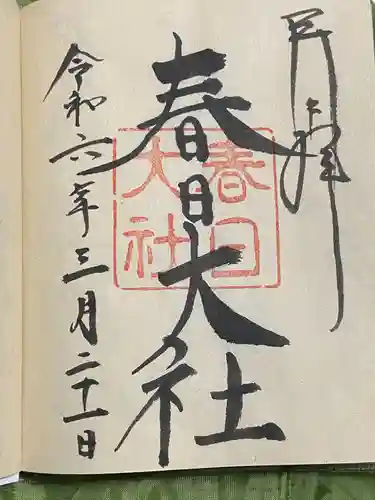 奉拝
春日大社
春日大社
令和六年三月二十一日